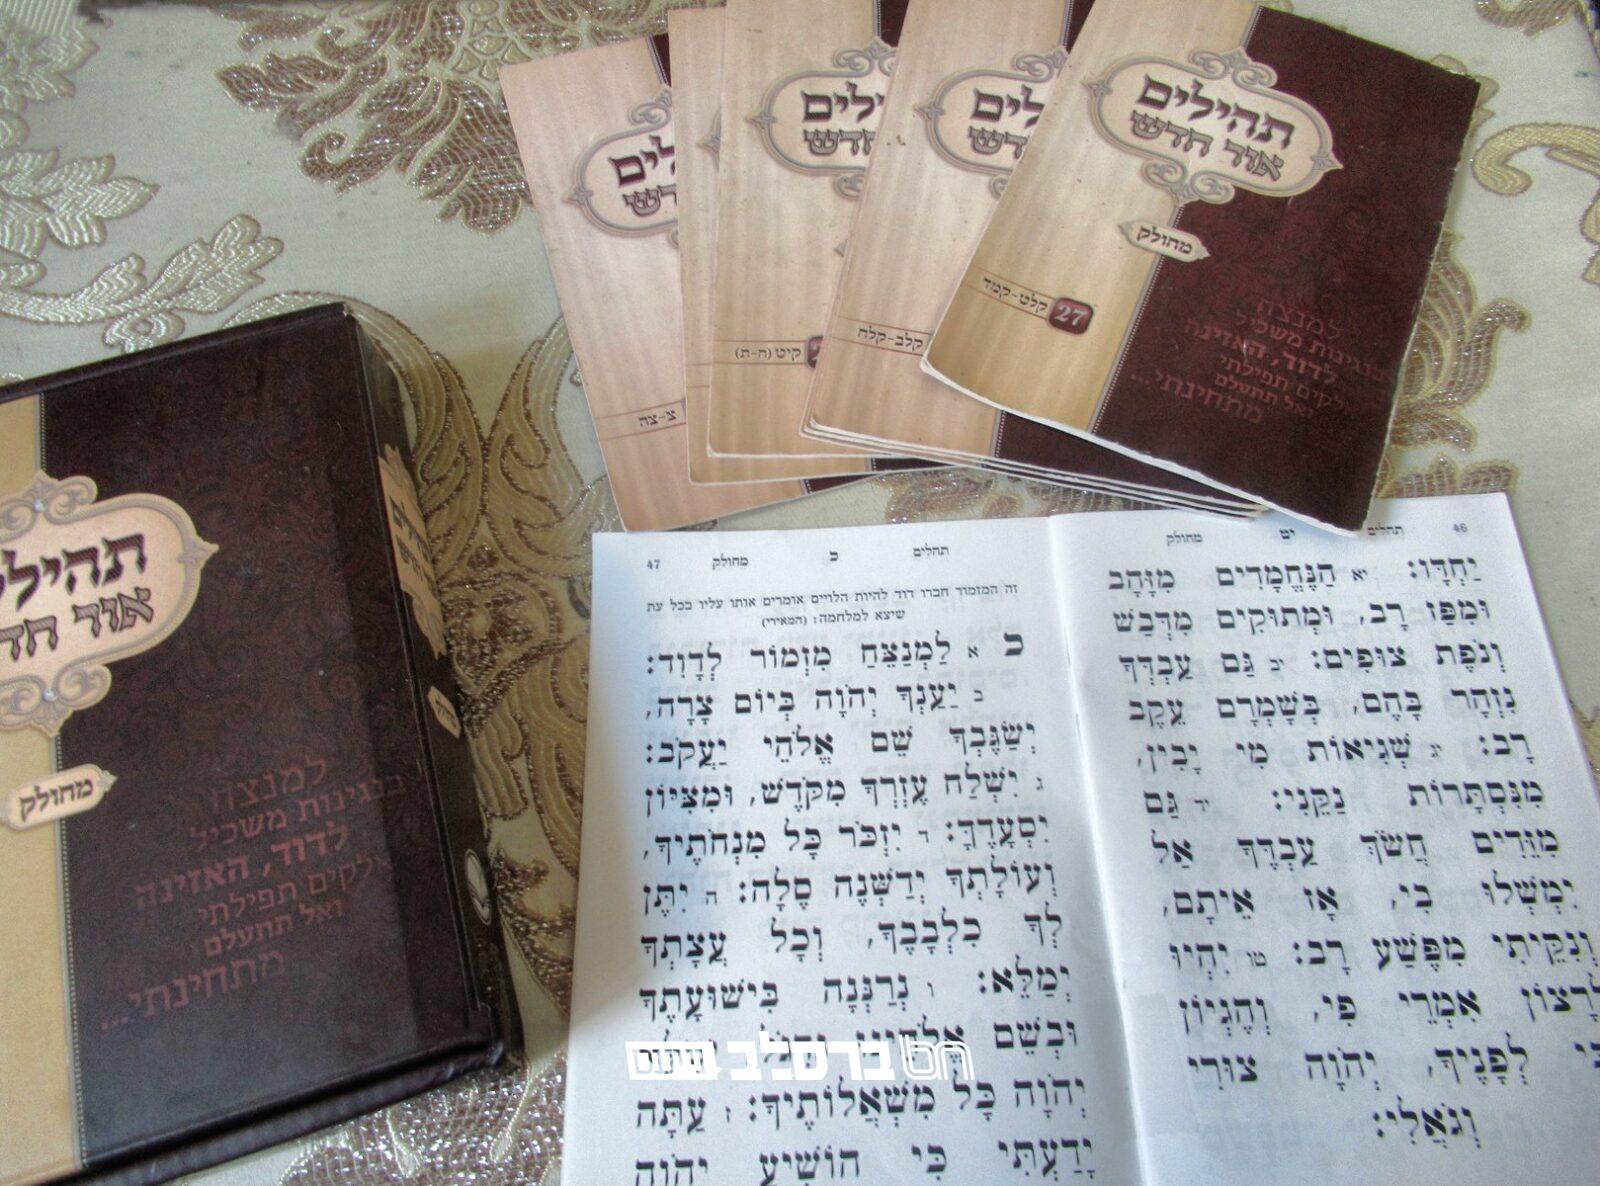 תהילים
אור חדש
מחולק
27
קלט-קמד
למנצח
בנגינות משכיל
לדוד, האזינה
לקים תפילתי
ואל תתעלם
מתחינתי...
קלב-קלח
קיט (ח-ת)
צ-צה
אור
מחולק
למנצח
בנגינות משכיל
לדוד, האזינה
אלקים תפילתי
ואל תתעלם
מתחינתי...
46 תהלים יט מחולק
יַחְדָּו: יא הַנֶּחֱמָדִים מִזָּהָב
וּמִפַּז רָב, וּמְתוּקִים מִדְּבַשׁ
וְנֹפֶת צוּפִים: יב גַּם עַבְדְּךָ
נִזְהָר בָּהֶם, בְּשָׁמְרָם עֵקֶב
רָב: יג שְׁגִיאוֹת מִי יָבִין,
מִנִּסְתָּרוֹת נַקֵּנִי: יד גַּם
מִזֵּדִים חֲשֹׂךְ עַבְדֶּךָ אַל
יִמְשְׁלוּ בִי, אָז אֵיתָם,
וְנִקֵּיתִי מִפֶּשַׁע רָב: טו יִהְיוּ
לְרָצוֹן אִמְרֵי פִי, וְהֶגְיוֹן
לְפָנֶיךָ, יְהֹוָה צוּרִי
וְגֹאֲלִי:
תהלים כ מחולק 47
זה המזמור חברו דוד להיות הלויים אומרים אותו עליו בכל עת
שיצא למלחמה: (המאירי)
כ א לַמְנַצֵּחַ מִזְמוֹר לְדָוִד:
ב יַעַנְךָ יְהֹוָה בְּיוֹם צָרָה,
יְשַׂגֶּבְךָ שֵׁם אֱלֹהֵי יַעֲקֹב:
ג יִשְׁלַח עֶזְרְךָ מִקֹּדֶשׁ, וּמִצִּיּוֹן
יִסְעָדֶךָּ: ד יִזְכֹּר כָּל מִנְחֹתֶיךָ,
וְעוֹלָתְךָ יְדַשְּׁנֶה סֶלָה: ה יִתֶּן
לְךָ כִלְבָבֶךָ, וְכָל עֲצָתְךָ
יְמַלֵּא: ו נְרַנְּנָה בִּישׁוּעָתֶךָ
וּבְשֵׁם אֱלֹהֵינוּ
יְהֹוָה כָּל מִשְׁאֲלוֹתֶיךָ: ז עַתָּה
יָדַעְתִּי כִּי הוֹשִׁיעַ יְהֹוָה
ברסלב